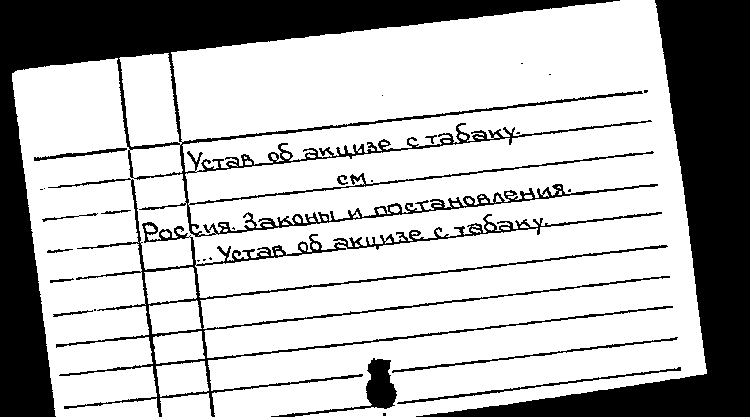 Устав об акцизе с табаку.
см.
Россия. Законы и постановления.
... Устав об акцизе с табаку.